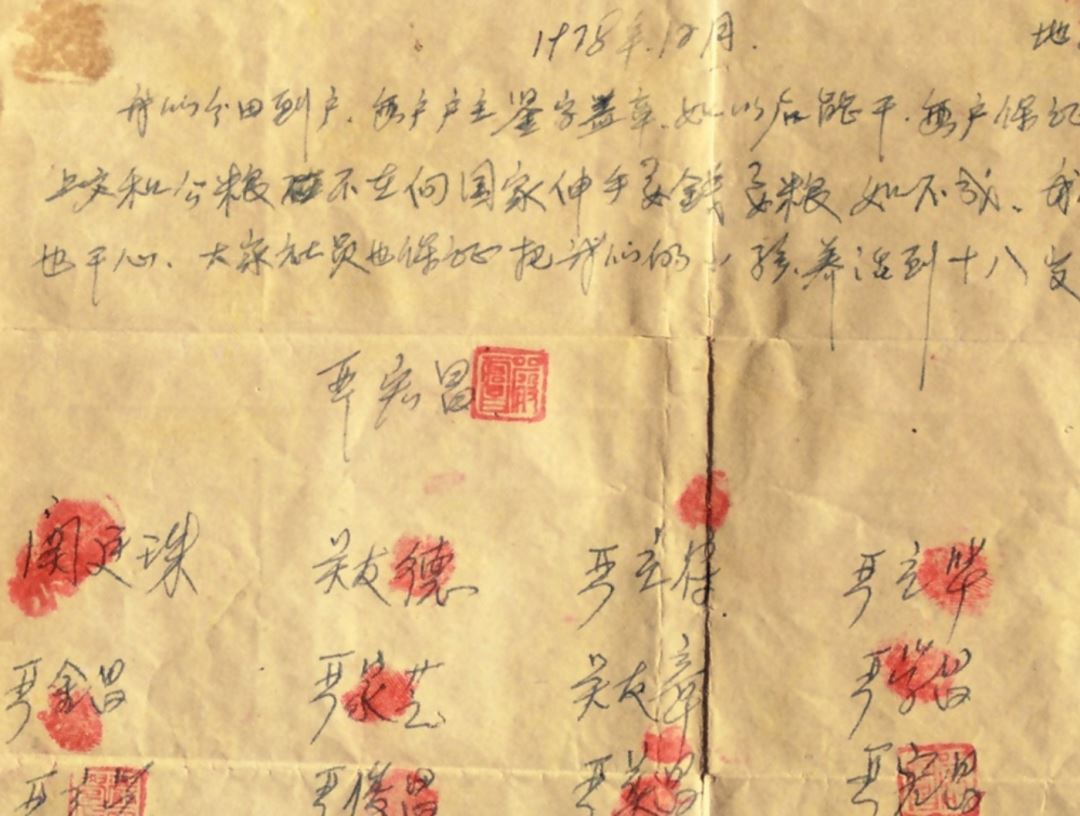 1978年.12月. 地
我们分田到户.每户户主鉴字盖章.如以后能干.每户保证
上交和公粮不在向国家伸手要錢要粮如不成.我
也干心.大家社员也保证把我们的小孩养活到十八岁
严宏昌
関廷珠 关友德 严立符 严立华
严金昌 严家芝 关友章 严学昌
严俊昌 严美昌 严宏昌